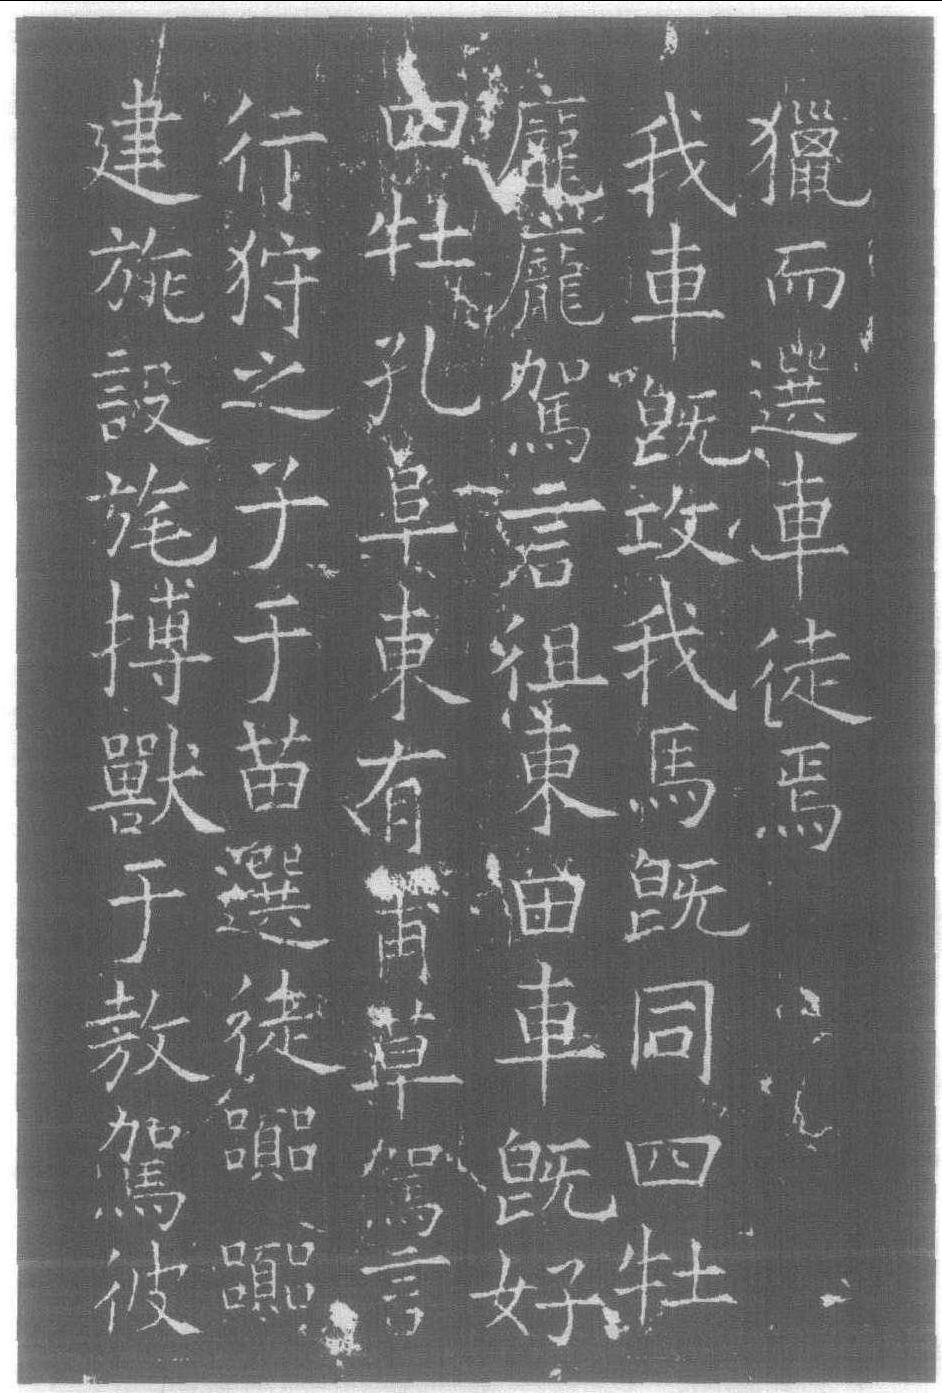 獵而選車徒焉
我車既攻我馬既同四牡
龐龐駕言徂東田車既好
四牡孔阜東有甫草駕言
行狩之子于苗選徒囂囂
建旐設旄搏獸于敖駕彼